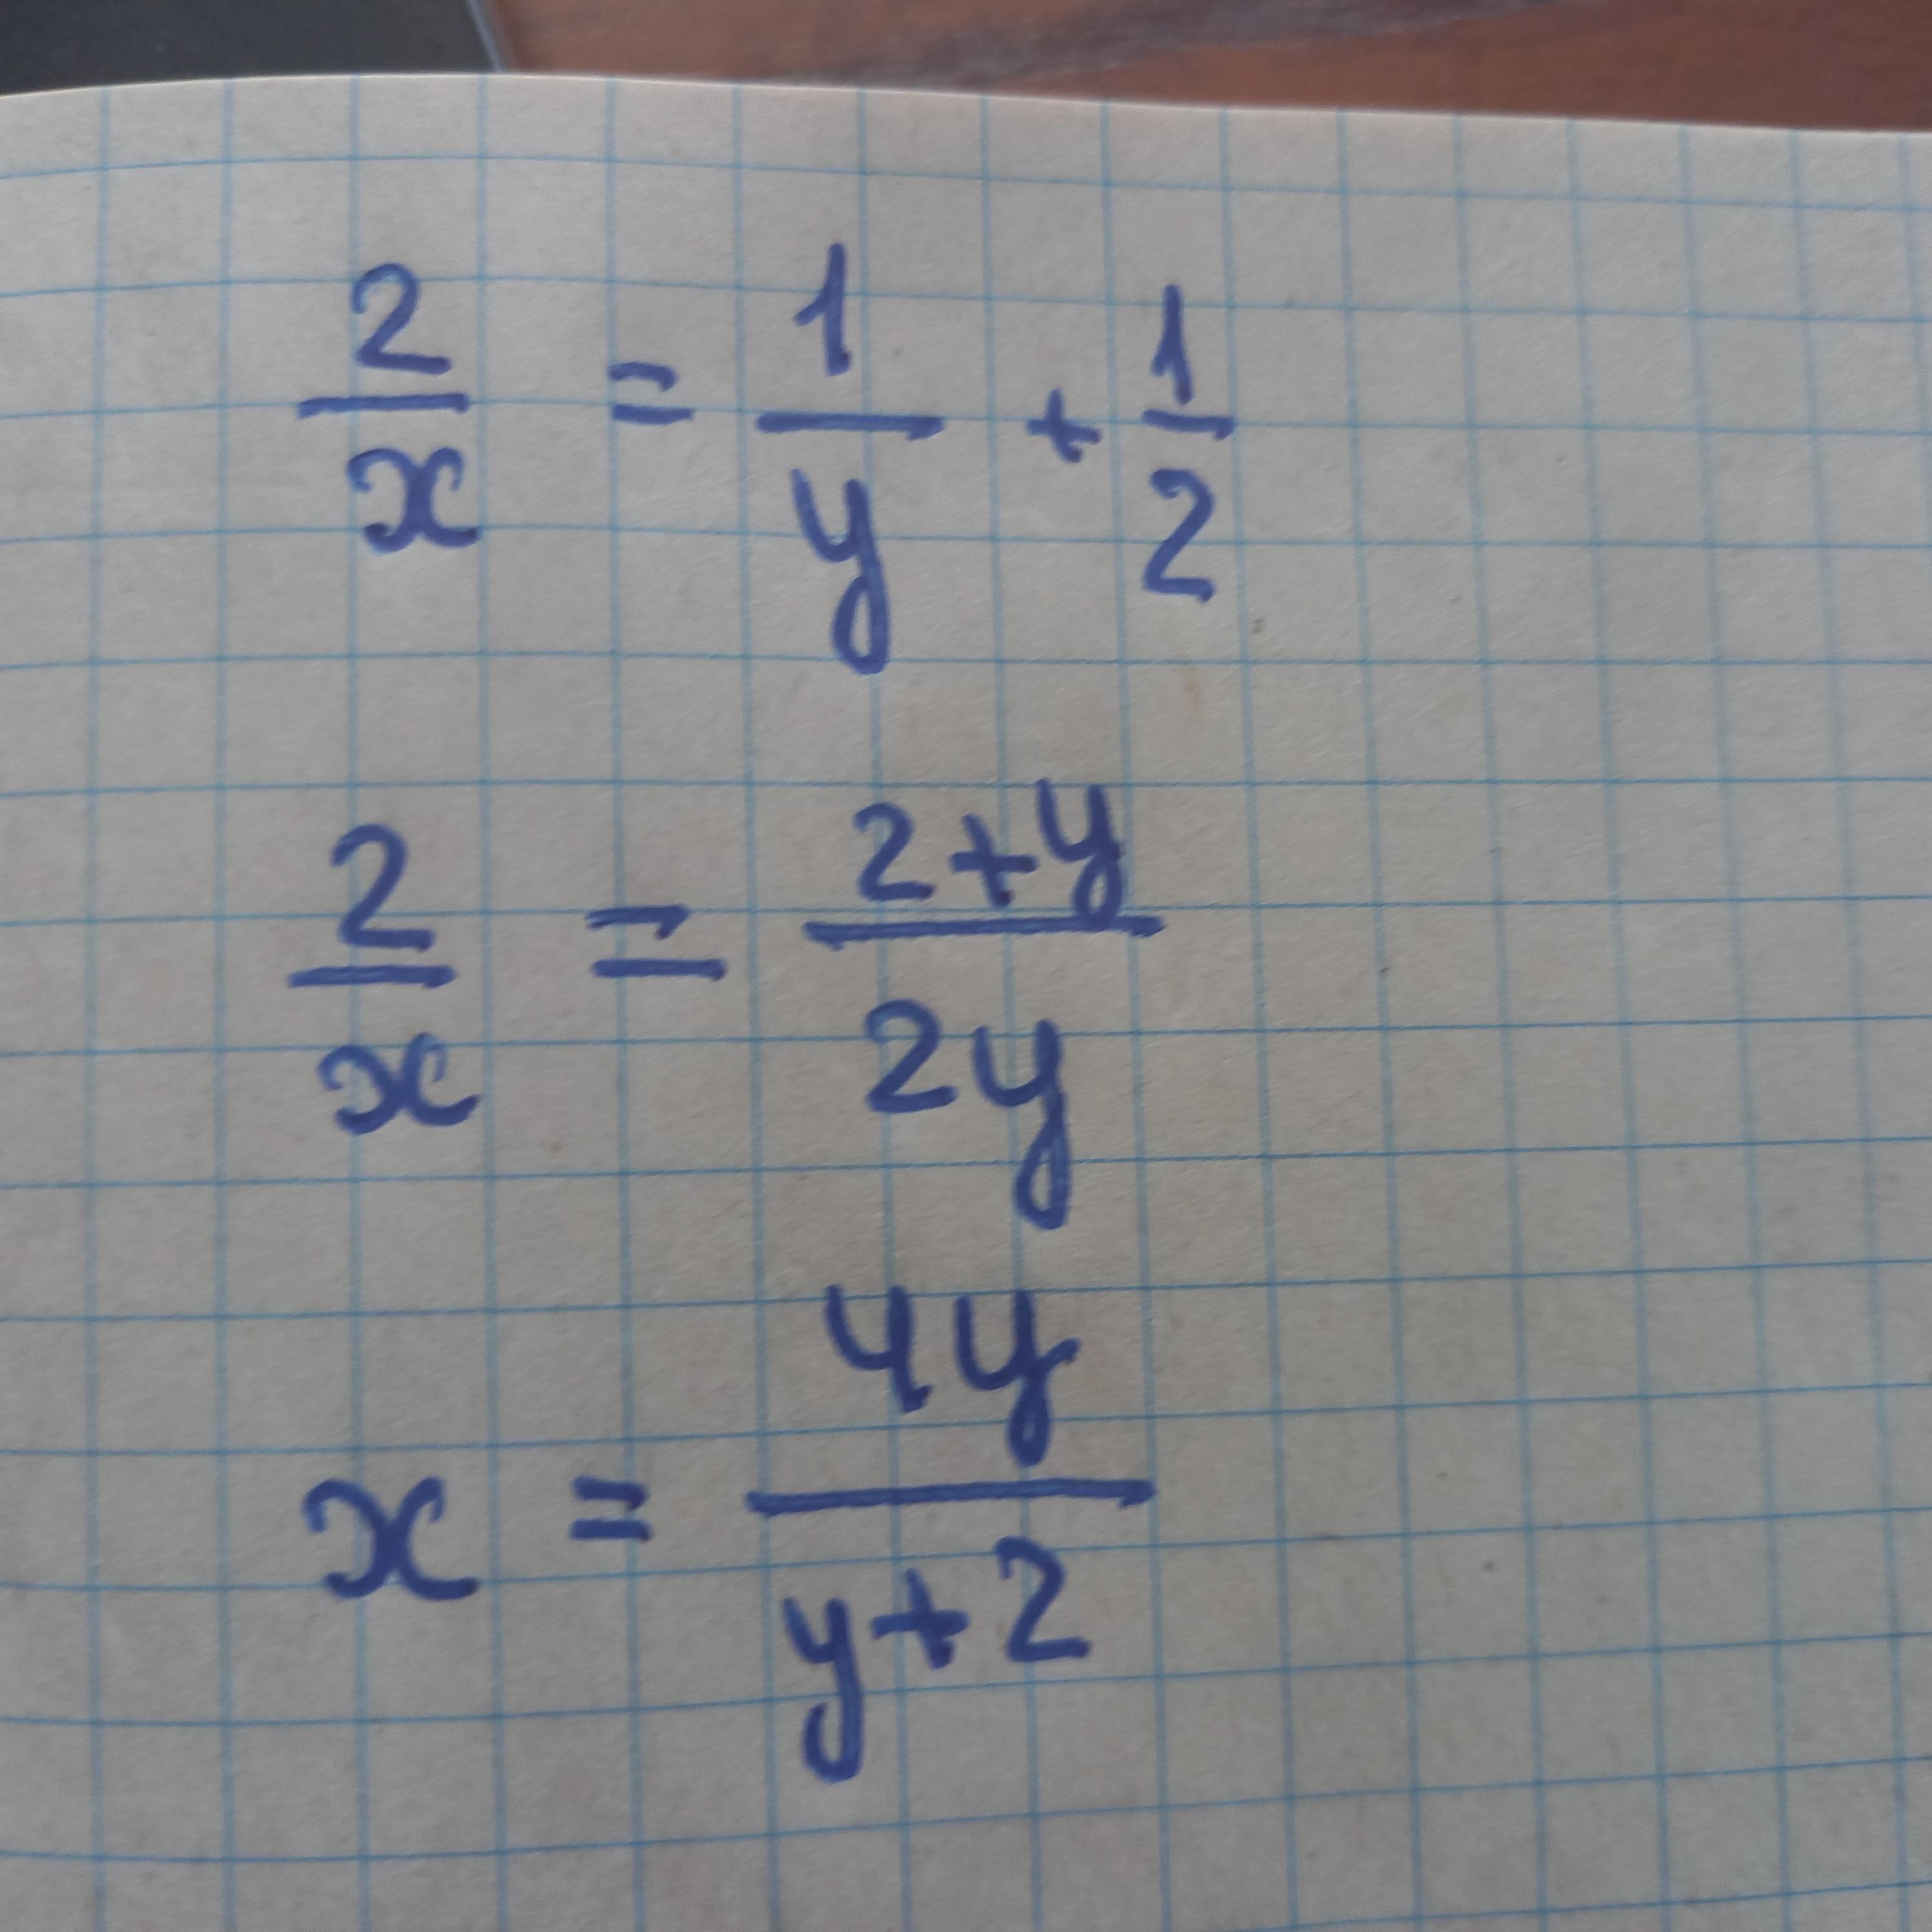 2/x = 1/y + 1/2
2/x = (2+y)/(2y)
x = (4y)/(y+2)